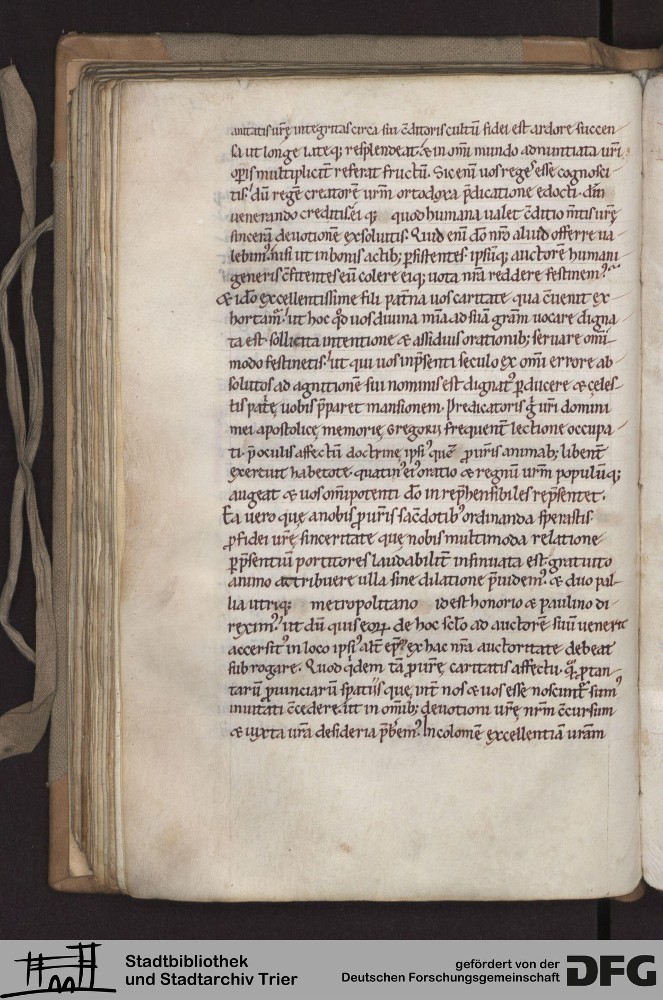 anitatis urę integritas circa sui c̄ditoris cultū fidei est ardore succen
sa ut longe lateq; resplendeat. & in om̄i mundo adnuntiata uri
opis multiplicit̄ referat fructū. Sic eni uos reges esse cognosci
tis. dū regē creatorē urm ortodoxa p̄dicatione edocti. dm̄
uenerando creditis. ei q; quod humana ualet c̄ditio m̄tis urę
sincerā deuotionē exsoluitis. Quid eni dō nrō aliud offerre ua
lebim? nisi ut in bonis actib; p̄sistentes ipsūq; auctorē humani
generis c̄fitentes eū colere eiq; uota nr̄a reddere festinem?
& idō excellentissime fili patn̄a uos caritate qua c̄uenit ex
hortam? ut hoc qd̄ uos diuina mīa ad suā grām uocare digna
ta est. sollicita intentione & assiduis orationib; seruare om̄i
modo festinetis. ut qui uos in p̄senti seculo ex om̄i errore ab
solutos ad agnitionē sui nominis est dignat? p̄ducere & cęles
tis patrię uobis p̄paret mansionem. Predicatoris g̊ uri domini
mei apostolicę memorię gregorii frequent̄ lectione occupa
ti. p̄ oculis affectū doctrinę ipsi? quē p uris animab; libent̄
exercuit habetote. quatin? ei? oratio & regnū urm populūq;
augeat & uos om̄ipotenti dō inrep̄hensibiles rep̄sentet.
Ea uero quę a nobis p uris sacdotib? ordinanda sperastis.
p fidei urę sinceritate quę nobis multimoda relatione
p p̄sentiū portitores laudabilit̄ insinuata est. gratuito
animo attribuere ulla sine dilatione p̄uidem?. & duo pal
lia utriq; metropolitano id est honorio & paulino di
rexim?. ut dū quis eoꝝ de hoc sclo ad auctorē suū uenerit
accersit? in loco ipsi? alt̄ ep̄m ex hac nr̄a auctoritate debeat
subrogare. Quod qdem tā p urę caritatis affectu. qā p tan
tarū puinciarū spatiis quę int̄ nos & uos esse noscunt̄. sum?
inuitati c̄cedere. ut in om̄ib; deuotioni urę nrm c̄cursum
& iuxta ura desideria p̄berem?. Incolomē excellentiā uram
Stadtbibliothek
und Stadtarchiv Trier
gefördert von der
Deutschen Forschungsgemeinschaft
DFG